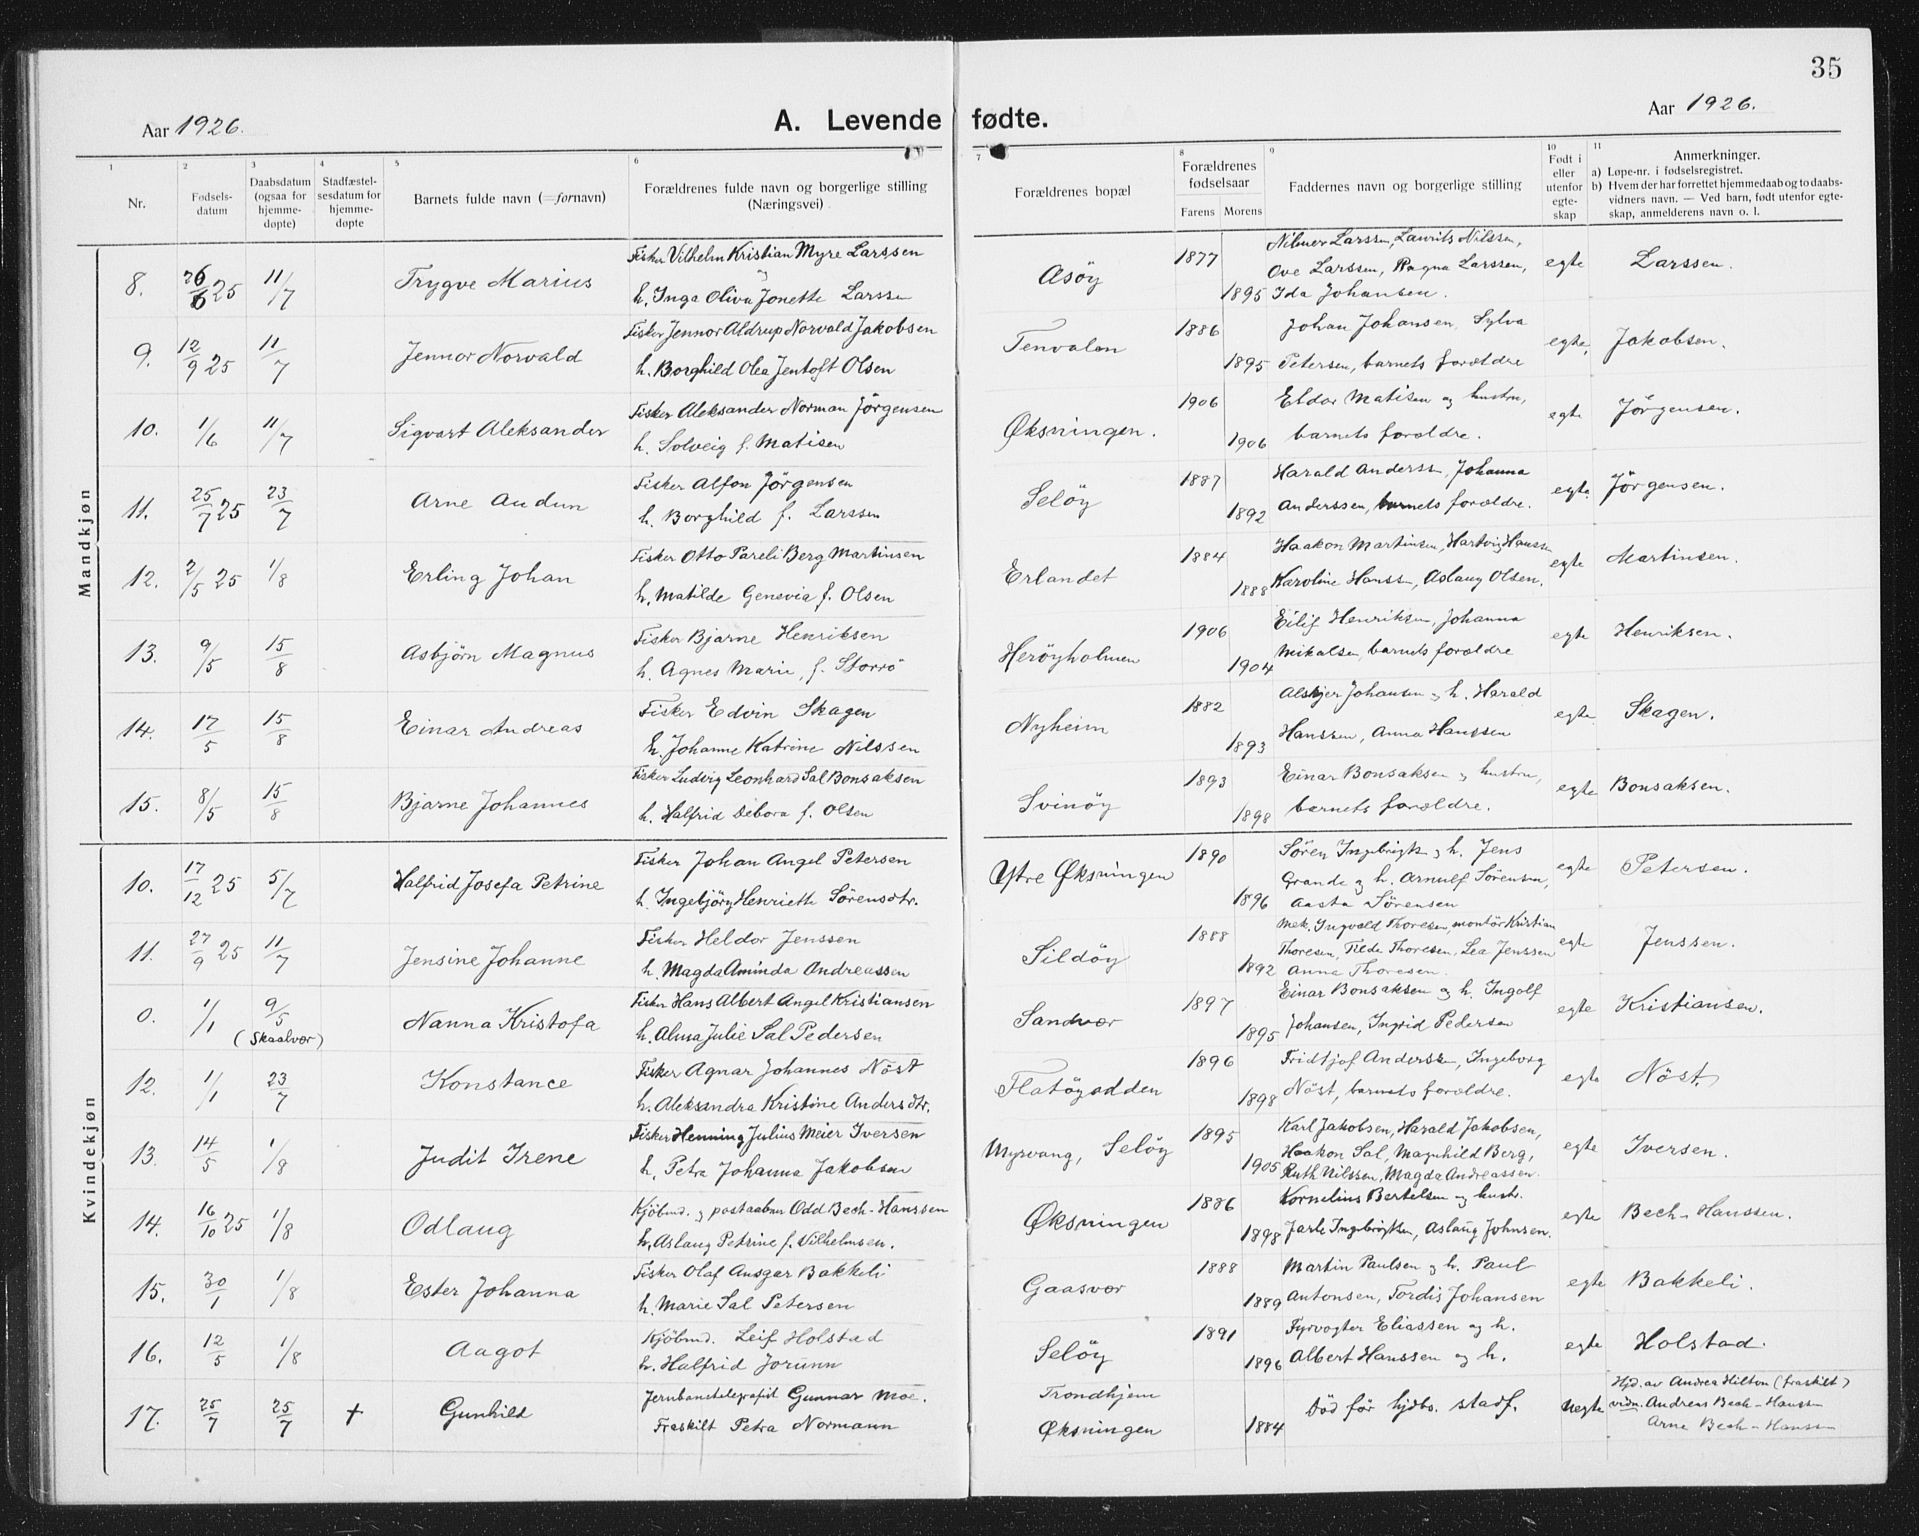 35
Aar 1926.
A. Levende fødte.
Aar 1926.
1 2 3 4 5 6 7 8 9 10 11
Nr.
Fødsels-
datum
Daabsdatum
(ogsaa for
hjemme-
døpte)
Stadfæstel-
sesdatum for
hjemme-
døpte
Barnets fulde navn (=fornavn)
Forældrenes fulde navn og borgerlige stilling
(Næringsvei)
Forældrenes bopæl
Forældrenes
fødselsaar
Farens Morens
Faddernes navn og borgerlige stilling
Født i
eller
utenfor
egte-
skap
Anmerkninger.
a) Løpe-nr. i fødselsregistret.
b) Hvem der har forrettet hjemmedaab og to daabs-
vidners navn. — Ved barn, født utenfor egte-
skap, anmelderens navn o. l.
Mandkjøn
8. 26/6 25 11/7 Trygve Marius
Fisker Vilhelm Kristian Myre Larssen
og
h. Inga Oliva Jonette Larssen
Asöy 1877 1895
Nilmer Larssen, Laurits Nilssen,
Ove Larssen, Ragna Larssen,
Ida Johansen.
egte Larssen.
9. 12/9 25 11/7 Jennor Norvald
Fisker Jennor Aldrup Norvald Jakobsen
h. Borghild Olea Jentoft Olsen
Tenvalen 1886 1895
Johan Johansen, Sylva
Petersen, barnets forældre
egte, Jakobsen.
10. 1/6 11/7 Sigvart Aleksander
Fisker Aleksander Norman Jörgensen
h. Solveig f. Matisen
Øksningen. 1906 1906
Eldor Matisen og hustru,
barnets forældre.
egte Jörgensen.
11. 25/7 25 23/7 Arne Audun
Fisker Alfon Jörgensen
h. Borghild f. Larssen
Selöy 1887 1892
Harald Anderssen, Johanna
Anderssen, barnets forældre.
egte Jörgensen.
12. 2/5 25 1/8 Erling Johan
Fisker Otto Pareli Berg Martinsen
h. Matilde Genevia f. Olsen
Erlandet 1884 1888
Haakon Martinsen, Hartvig Hanssen
Karoline Hanssen, Aslaug Olsen.
egte Martinsen.
13. 9/5 15/8 Asbjörn Magnus
Fisker Bjarne Henriksen
h. Agnes Marie, f. Storrö
Heröyholmen 1906 1904
Eilif Henriksen, Johanna
Mikalsen, barnets forældre
egte Henriksen.
14. 17/5 15/8 Einar Andreas
Fisker Edvin Skagen
h. Johanne Katrine Nilssen
Nyheim 1882 1893
Johansen og h. Harald
Hanssen, Anna Hanssen
egte Skagen.
15. 8/5 15/8 Bjarne Johannes
Fisker Ludvig Leonhard Sal Bonsaksen
h. Halfrid Debora f. Olsen
Svinöy 1893 1898
Einar Bonsaksen og hustru,
barnets forældre.
egte Bonsaksen.
Kvindekjøn
10. 17/12 25 5/7 Halfrid Josefa Petrine
Fisker Johan Angel Petersen
h. Ingebjörg Henriette Sörensdtr.
Ytre Øksningen 1890 1896
Sören Ingebrigts. og h. Jens
Grande og h. Arnulf Sörensen,
Aasta Sörensen
egte Petersen.
11. 27/9 25 11/7 Jensine Johanne
Fisker Heldor Jenssen
h. Magda Aminda Andreassen
Sildöy 1888 1892
Mek. Ingvald Thoresen, montör Kristian
Thoresen, Tilda Thoresen, Lea Jenssen
Anna Thoresen.
egte Jenssen.
0. 1/1 9/5 (Skaalvær) Nanna Kristofa
Fisker Hans Albert Angel Kristiansen
h. Alma Julie Sal Pedersen
Sandvær 1897 1895
Einar Bonsaksen og h. Ingolf
Johansen, Ingrid Pedersen
egte Kristiansen.
12. 1/1 23/7 Konstance
Fisker Agnar Johannes Nöst
h. Aleksandra Kristine Andersdtr.
Flatöyodden 1896 1898
Fridtjof Anderssen, Ingeborg
Nöst, barnets forældre.
egte Nöst.
13. 14/5 1/8 Judit Irene
Fisker Henning Julius Meier Iversen
h. Petra Johanna Jakobsen
Myrvang, Selöy 1895 1905
Karl Jakobsen, Harald Jakobsen,
Haakon Sal, Magnhild Berg,
Ruth Nilssen, Magda Andreassen.
egte Iversen.
14. 16/10 25 1/8 Odlaug
Kjöbmd. og postaabner Odd Bech-Hanssen
h. Aslaug Petrine f. Vilhelmsen.
Øksningen 1886 1898
Kornelius Bertelsen og hustr.
Jarle Ingebrigtsen, Aslaug Johnsen.
egte Bech-Hanssen.
15. 30/1 1/8 Ester Johanna
Fisker Olaf Ansgar Bakkeli
h. Marie Sal Petersen
Gaasvær 1888 1889
Martin Paulsen og h. Paul
Antonsen, Tordis Johansen
egte Bakkeli.
16. 12/5 1/8 Aagot
Kjöbmd. Leif Holstad
h. Halfrid Jorunn
Selöy 1891 1896
Fyrvogter Eliassen og h.
Albert Hanssen og h.
egte Holstad.
17. 25/7 25/7 + Gunhild
Jernbanetelegrafist Gunnar Moe.
Fraskilt Petra Normann
Trondhjem
Øksningen 1884
Död för hjdbs. stadf.
uegte
Hjd. av Andrea Hilton (fraskilt)
vidn. Andreas Bech-Hanssen
Arne Bech-Hanssen